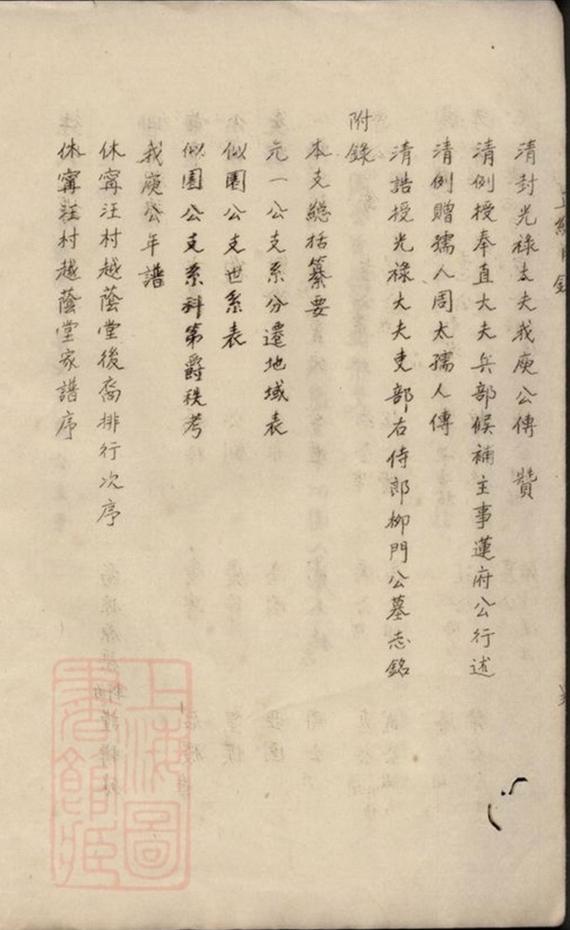 清封光祿大夫我庾公傳　贊
清例授奉直大夫兵部候補主事蓮府公行述
清例贈孺人周太孺人傳
清誥授光祿大夫吏部右侍郎柳門公墓志銘
附錄
本支總括纂要
元一公支系分遷地域表
似園公支世系表
似園公支系科第爵秩考
我庾公年譜
休寧汪村越蔭堂後裔排行次序
休寧汪村越蔭堂家譜序
上海圖書館藏